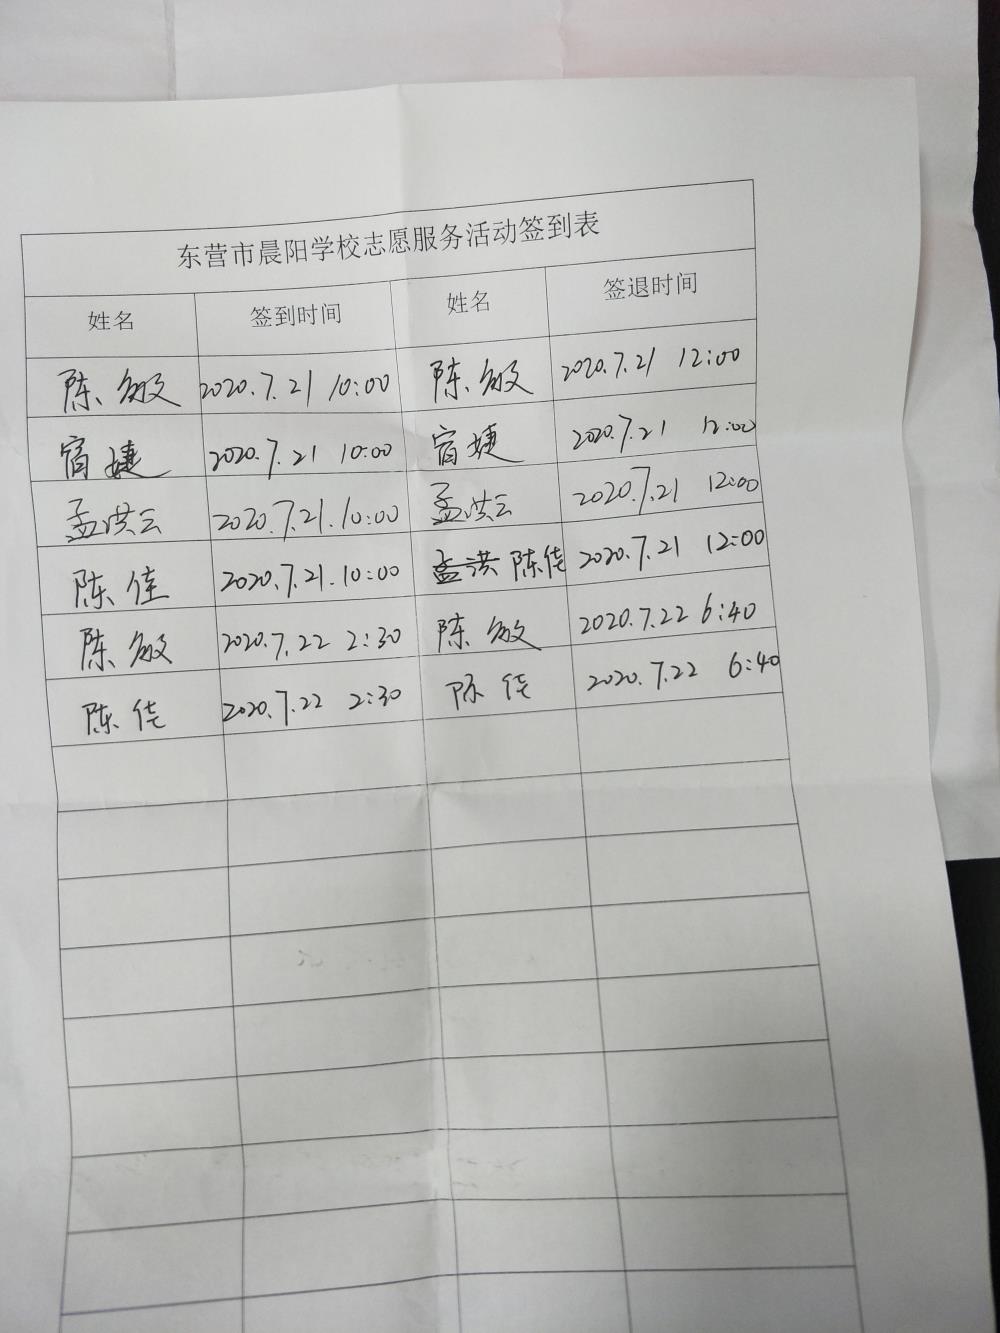 东营市晨阳学校志愿服务活动签到表
姓名 签到时间 姓名 签退时间
陈敏 2020.7.21 10:00 陈敏 2020.7.21 12:00
宿婕 2020.7.21 10:00 宿婕 2020.7.21 12:00
孟洪云 2020.7.21.10:00 孟洪云 2020.7.21 12:00
陈佳 2020.7.21.10:00 孟洪 陈佳 2020.7.21 12:00
陈敏 2020.7.22 2:30 陈敏 2020.7.22 6:40
陈佳 2020.7.22 2:30 陈佳 2020.7.22 6:40